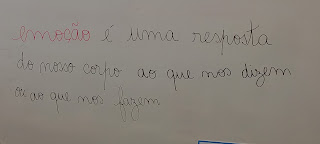 emoção é uma resposta
do nosso corpo ao que nos dizem
ou ao que nos fazem